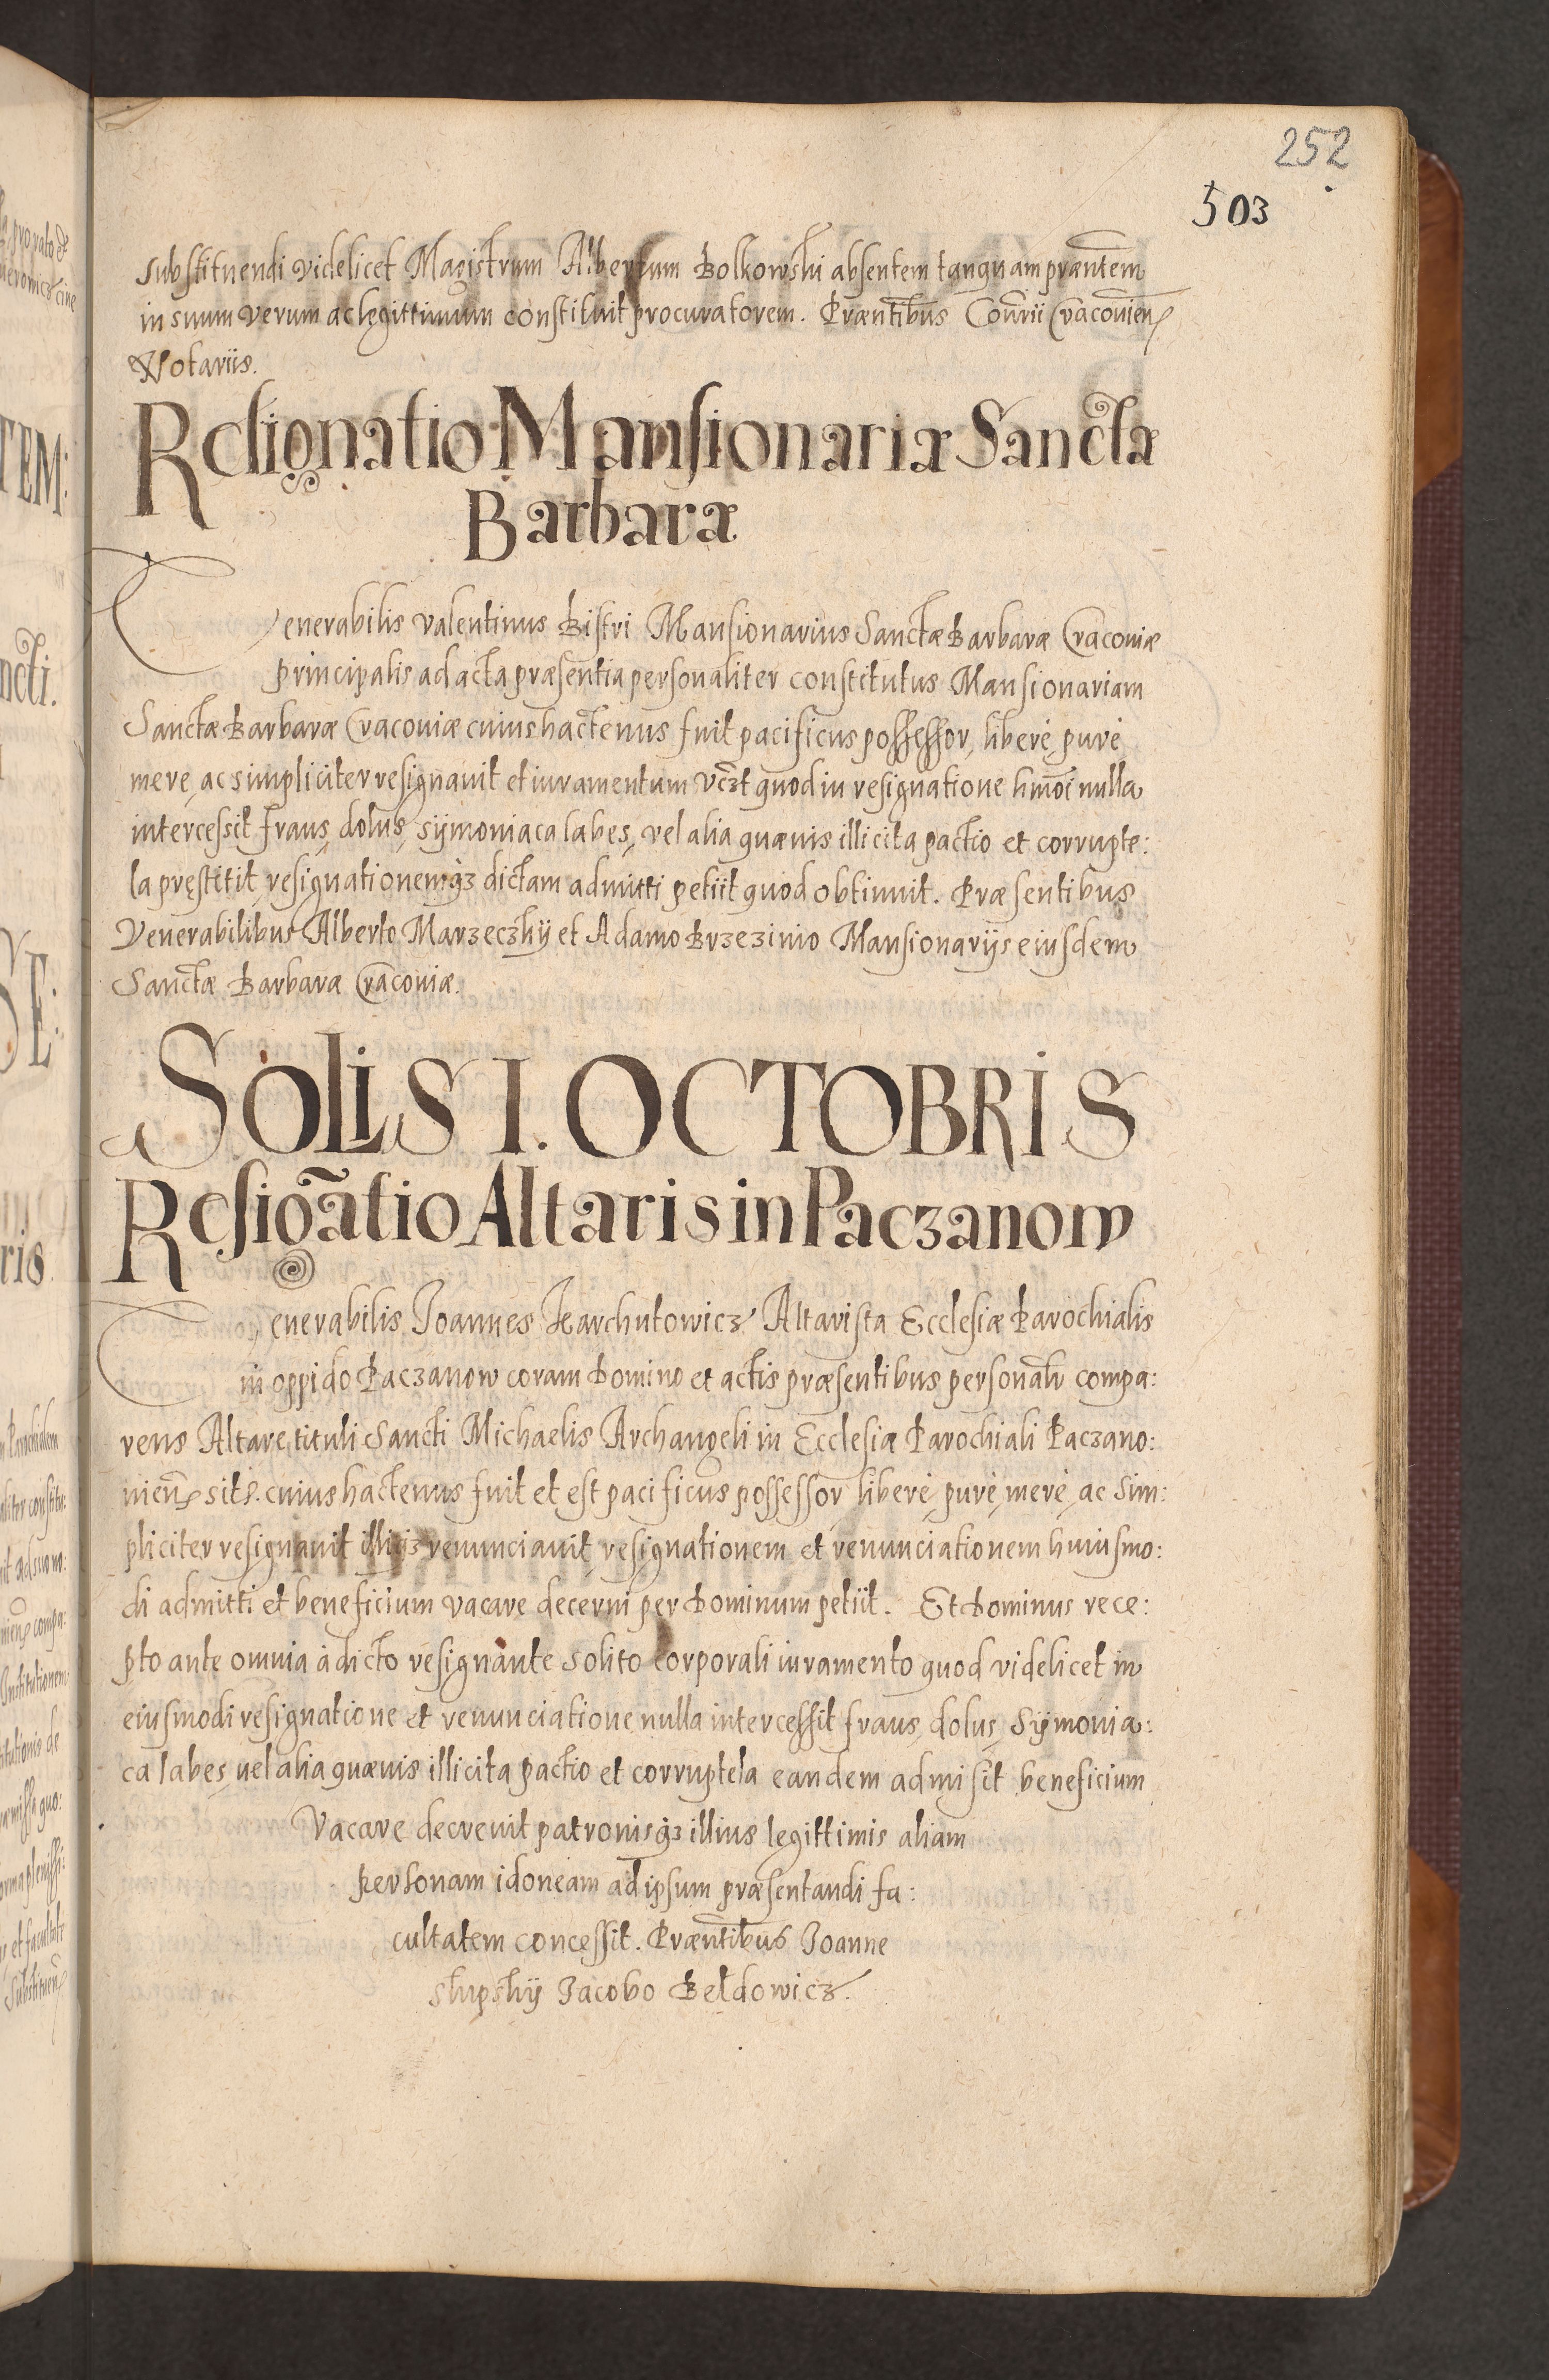 252
503
substituendi videlicet Magistrum Albertum Bolkowski absentem tanquam præntem
in suum verum ac legittimum constituit procuratorem. Præntibus Con͞rii Cracouien
Notariis.
Resignatio Mansionariæ Sanctæ
Barbaræ
Venerabilis Valentinus Bistri Mansionarius Sanctæ Barbaræ Cracouiæ
principalis ad acta præsentia personaliter constitutus Mansionariam
Sanctæ Barbaræ Cracouiæ cuius hactenus fuit pacificus possessor, liberè, purè,
mere, ac simpliciter resignauit et iuramentum vczt quod in resignatione hm̄oi nulla
intercessit fraus, dolus, sÿmoniaca labes, vel alia quæuis illicita pactio et corrupte:
la pręstitit, resignationemq3 dictam admitti petiit quod obtinuit. Præsentibus
Venerabilibus Alberto Marzeczkÿ et Adamo Brzezinio Mansionarÿs eiusdem
Sanctæ Barbaræ Cracouiæ.
SOLIS I. OCTOBRIS
Resig̃atio Altaris in Paczanow
Venerabilis Joannes Karchutowicz Altarista Ecclesiæ Parochialis
in oppido Paczanow coram Domino et actis præsentibus personalr compa:
rens Altare tituli Sancti Michaelis Archangeli in Ecclesiæ Parochiali Paczano:
uien sit. cuius hactenus fuit et est pacificus possessor, liberè, purè, merè, ac sim:
pliciter resignauit illiq3 renunciauit, resignationem et renunciationem huiusmo:
di admitti et beneficium vacare decerni per Dominum petiit. Et Dominus rece:
pto ante omnia à dicto resignante solito corporali iuramento quod videlicet in
eiusmodi resignatione et renunciatione nulla intercessit fraus, dolus, Sÿmonia:
ca labes, uel alia quæuis illicita pactio et corruptela eandem admisit beneficium
Vacare decreuit patronisq3 illius legittimis aliam
personam idoneam ad ipsum præsentandi fa:
cultatem concessit. Præntibus Joanne
Slupskÿ Jacobo Beldowicz.